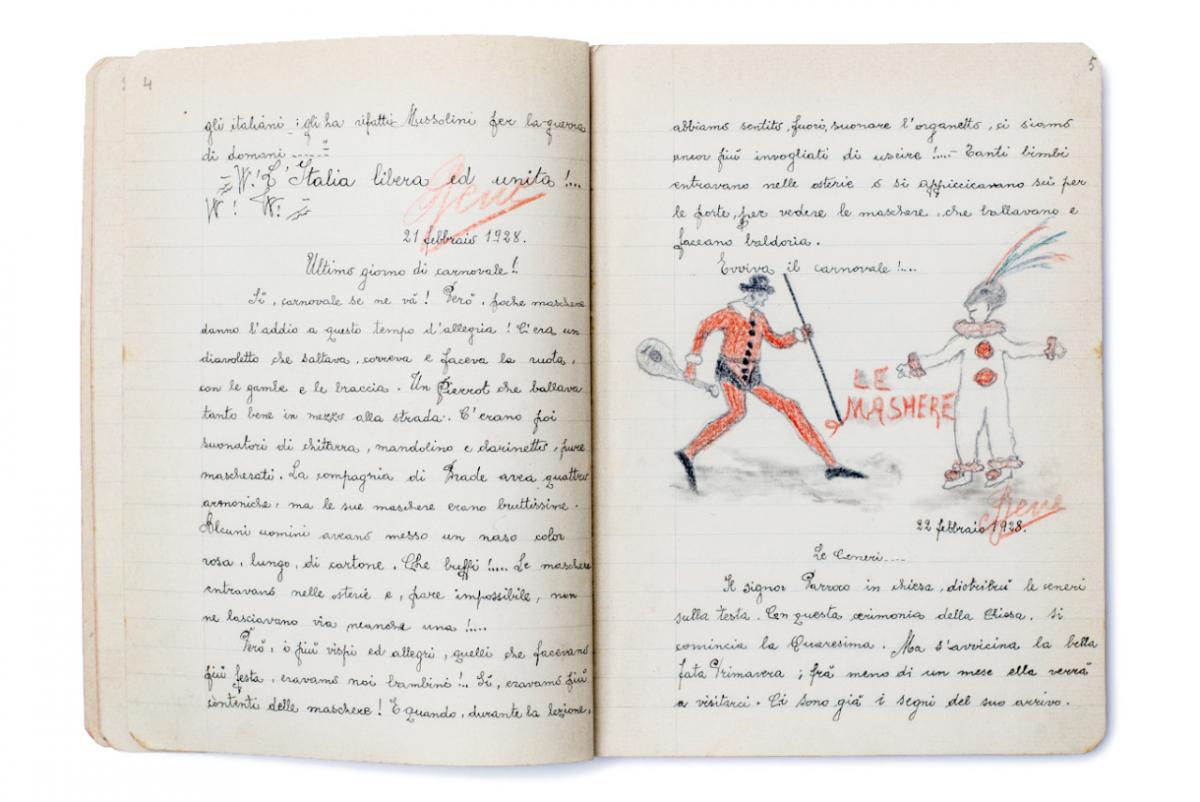 3 4
gli italiani : gli ha rifatti Mussolini per la guerra
di domani ......
W.! L'Italia libera ed unita !....
W! W.
Bene
21 febbraio 1928.
Ultimo giorno di carnovale !
Sí, carnovale se ne vá ! Peró, poche maschere
danno l'addio a questo tempo d'allegria ! C'era un
diavoletto che saltava, correva e faceva la ruota,
con le gambe e le braccia. Un Pierrot che ballava
tanto bene in mezzo alla strada. C'erano poi
suonatori di chittarra, mandolino e clarinetto, pure
mascherati. La compagnia di Prade avea quattro
armoniche, ma le sue maschere erano bruttissime.
Alcuni uomini aveano messo un naso color
rosa, lungo, di cartone. Che buffi !..... Le maschere
entravano nelle osterie e, pare impossibile, non
ne lasciavano via neanche una !....
Peró, i piú vispi ed allegri, quelli che facevano
piú festa, eravamo noi bambini !.. Sí, eravamo piú
contenti delle maschere ! E quando, durante la lezione,
5
abbiamo sentito, fuori, suonare l'organetto, ci siamo
ancor piú invogliati di uscire !...- Tanti bimbi
entravano nelle osterie o si appiccicavano sú per
le porte, per vedere le maschere, che ballavano e
faceano baldoria.
Evviva il carnovale !....
LE
MASHERE
Bene
22 febbraio 1928.
Le Ceneri.....
Il signor Parroco in chiesa, distribuí le ceneri
sulla testa. Con questa cerimonia della Chiesa, si
comincia la Quaresima. Ma s'avvicina la bella
fata Primavera ; frá meno di un mese ella verrá
a visitarci. Ci sono giá i segni del suo arrivo.